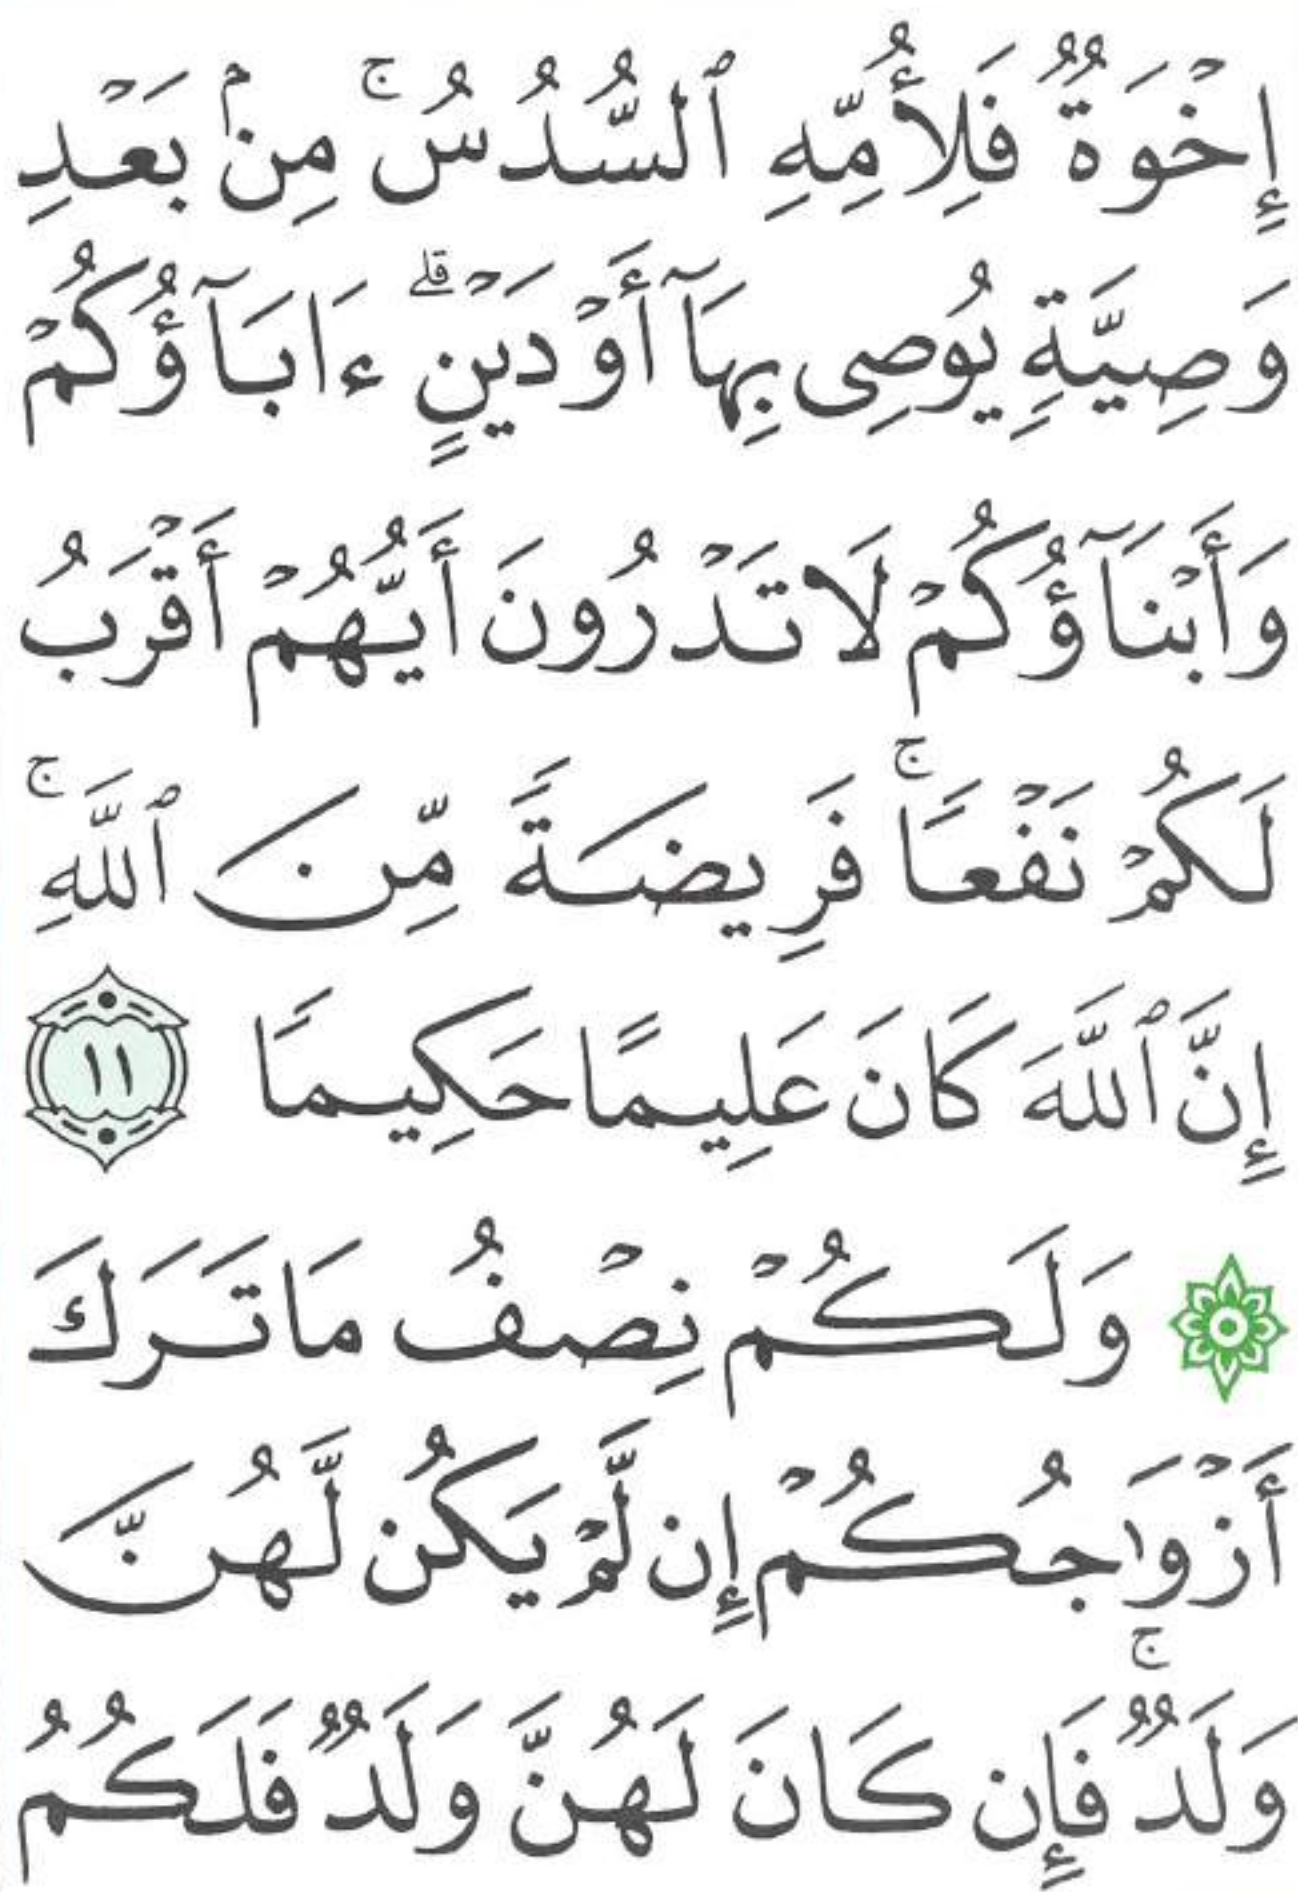 إِخْوَةٌ فَلِأُمِّهِ ٱلسُّدُسُ ۚ مِنۢ بَعْدِ
وَصِيَّةٍ يُوصِى بِهَآ أَوْ دَيْنٍ ۗ ءَابَآؤُكُمْ
وَأَبْنَآؤُكُمْ لَا تَدْرُونَ أَيُّهُمْ أَقْرَبُ
لَكُمْ نَفْعًا ۚ فَرِيضَةً مِّنَ ٱللَّهِ ۚ
إِنَّ ٱللَّهَ كَانَ عَلِيمًا حَكِيمًا ١١
۞ وَلَكُمْ نِصْفُ مَا تَرَكَ
أَزْوَٰجُكُمْ إِن لَّمْ يَكُن لَّهُنَّ
وَلَدٌ ۚ فَإِن كَانَ لَهُنَّ وَلَدٌ فَلَكُمُ